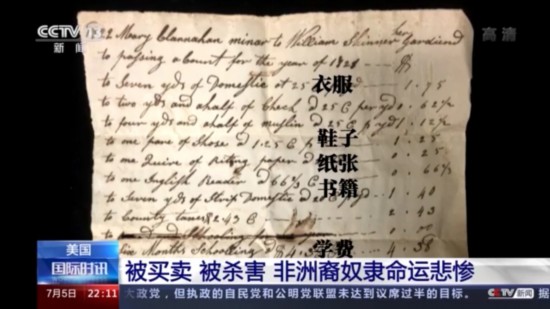 CCTV 13
新闻
高清
1822 Mary Clannahan minor to William Skinner her Gardiend
to passing a Count for the year of 1821
to Seven yds of Domestic at 25 1.75
衣服
to two yds and ahalf of Check @ 25 C per yd 0.62½
to four yds and ahalf of muslin @ 25 C pr yd 1.12½
to one pare of Shose @ 1.25 C 1.25
鞋子
to one Quire of Riting paper @ 0.25
纸张
to one Inglish Reader @ 66⅔ C
书籍
to Seven yds of Domestic @ 20 C 1.40
to County taxes 2.43 C
Months Schooling
学费
美国
国际时讯
被买卖 被杀害 非洲裔奴隶命运悲惨
7月5日 22:11 大政党，但执政的自民党和公明党联盟未达到议席过半的目标。
CCTV新闻 据